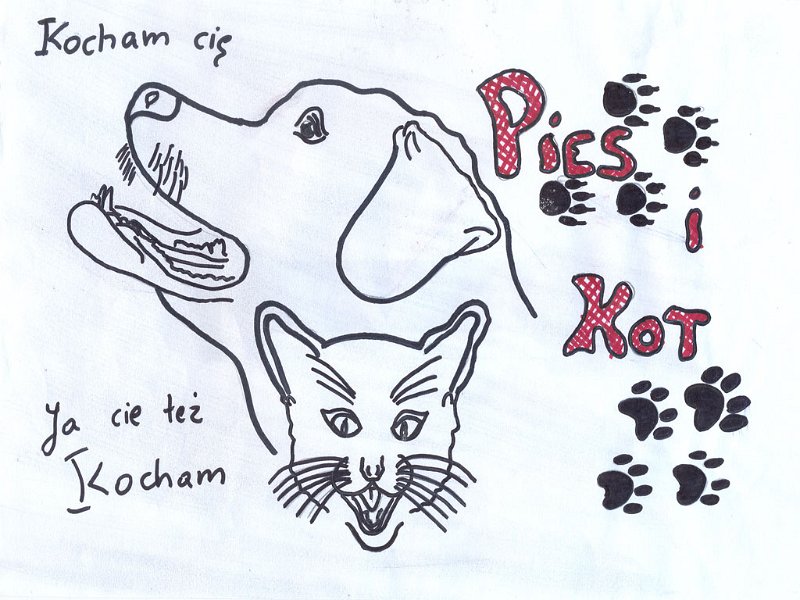 Kocham cię
Pies
i
Kot
Ja cie też
Kocham